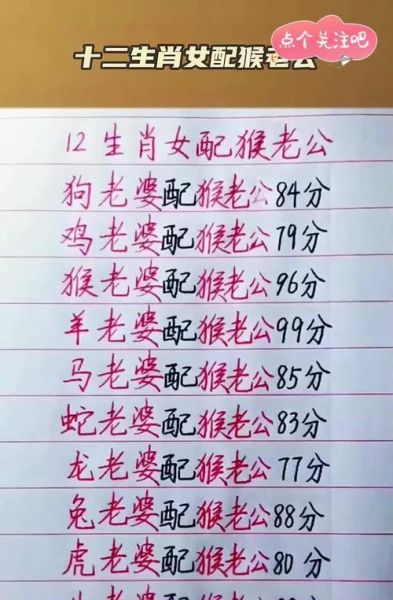 十二生肖女配猴老公
点个关注吧
12生肖女配猴老公
狗老婆配猴老公84分
鸡老婆配猴老公79分
猴老婆配猴老公96分
羊老婆配猴老公99分
马老婆配猴老公85分
蛇老婆配猴老公83分
龙老婆配猴老公77分
兔老婆配猴老公88分
虎老婆配猴老公80分